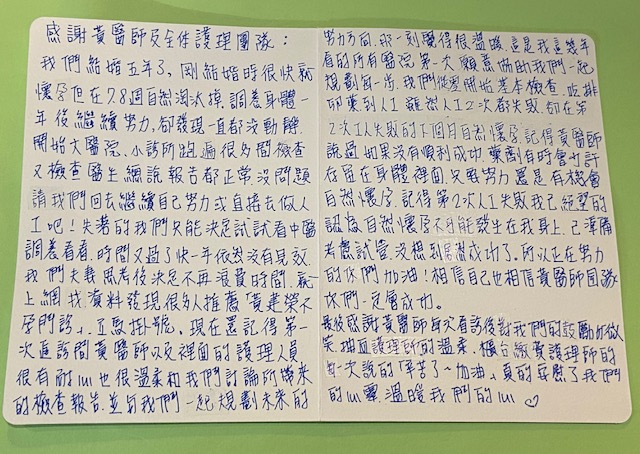 感謝黃醫師及全体護理團隊：
我們結婚五年了，剛結婚時很快就
懷孕但在7.8週自然淘汰掉，調養身體一
年後繼續努力，卻發現一直都沒動靜
開始大醫院、小診所跑遍很多間檢查
又檢查醫生總說報告都正常沒問題
請我們回去繼續自己努力或直接去做人
工吧！失落的我們只能決定試試看中醫
調養看看，時間又過了快一年依然沒有見效
我們夫妻思考後決定不再浪費時間，就
上網找資料發現很多人推薦「黃建榮不
孕門診」，立馬掛號，現在還記得第一
次進診間黃醫師以及裡面的護理人員
很有耐心也很溫柔和我們討論所帶來
的檢查報告，並和我們一起規劃未來的
努力方向，那一刻覺得很溫暖，這是我這幾年
看的所有醫院第一次願意協助我們一起
規劃每一步，我們從零開始基本檢查，吃排
卵藥到人工，雖然人工2次都失敗，卻在第
2次人工失敗的下個月自然懷孕，記得黃醫師
說過如果沒有順利成功，藥劑有時會也許
存留在身體裡面，只要努力還是有機會
自然懷孕，記得第2次人工失敗我已經絕望的
認為自然懷孕不可能發生在我身上，已準備
考慮試管，沒想到成功了。所以正在努力
的你們加油！相信自己也相信黃醫師團隊
你們一定會成功。
最後感謝黃醫師每次看診後對我們的鼓勵和微
笑，抽血護理師的溫柔，櫃台繳費護理師的
每一次說的「辛苦了～加油」真的安慰了我們
的心靈，溫暖我們的心♡